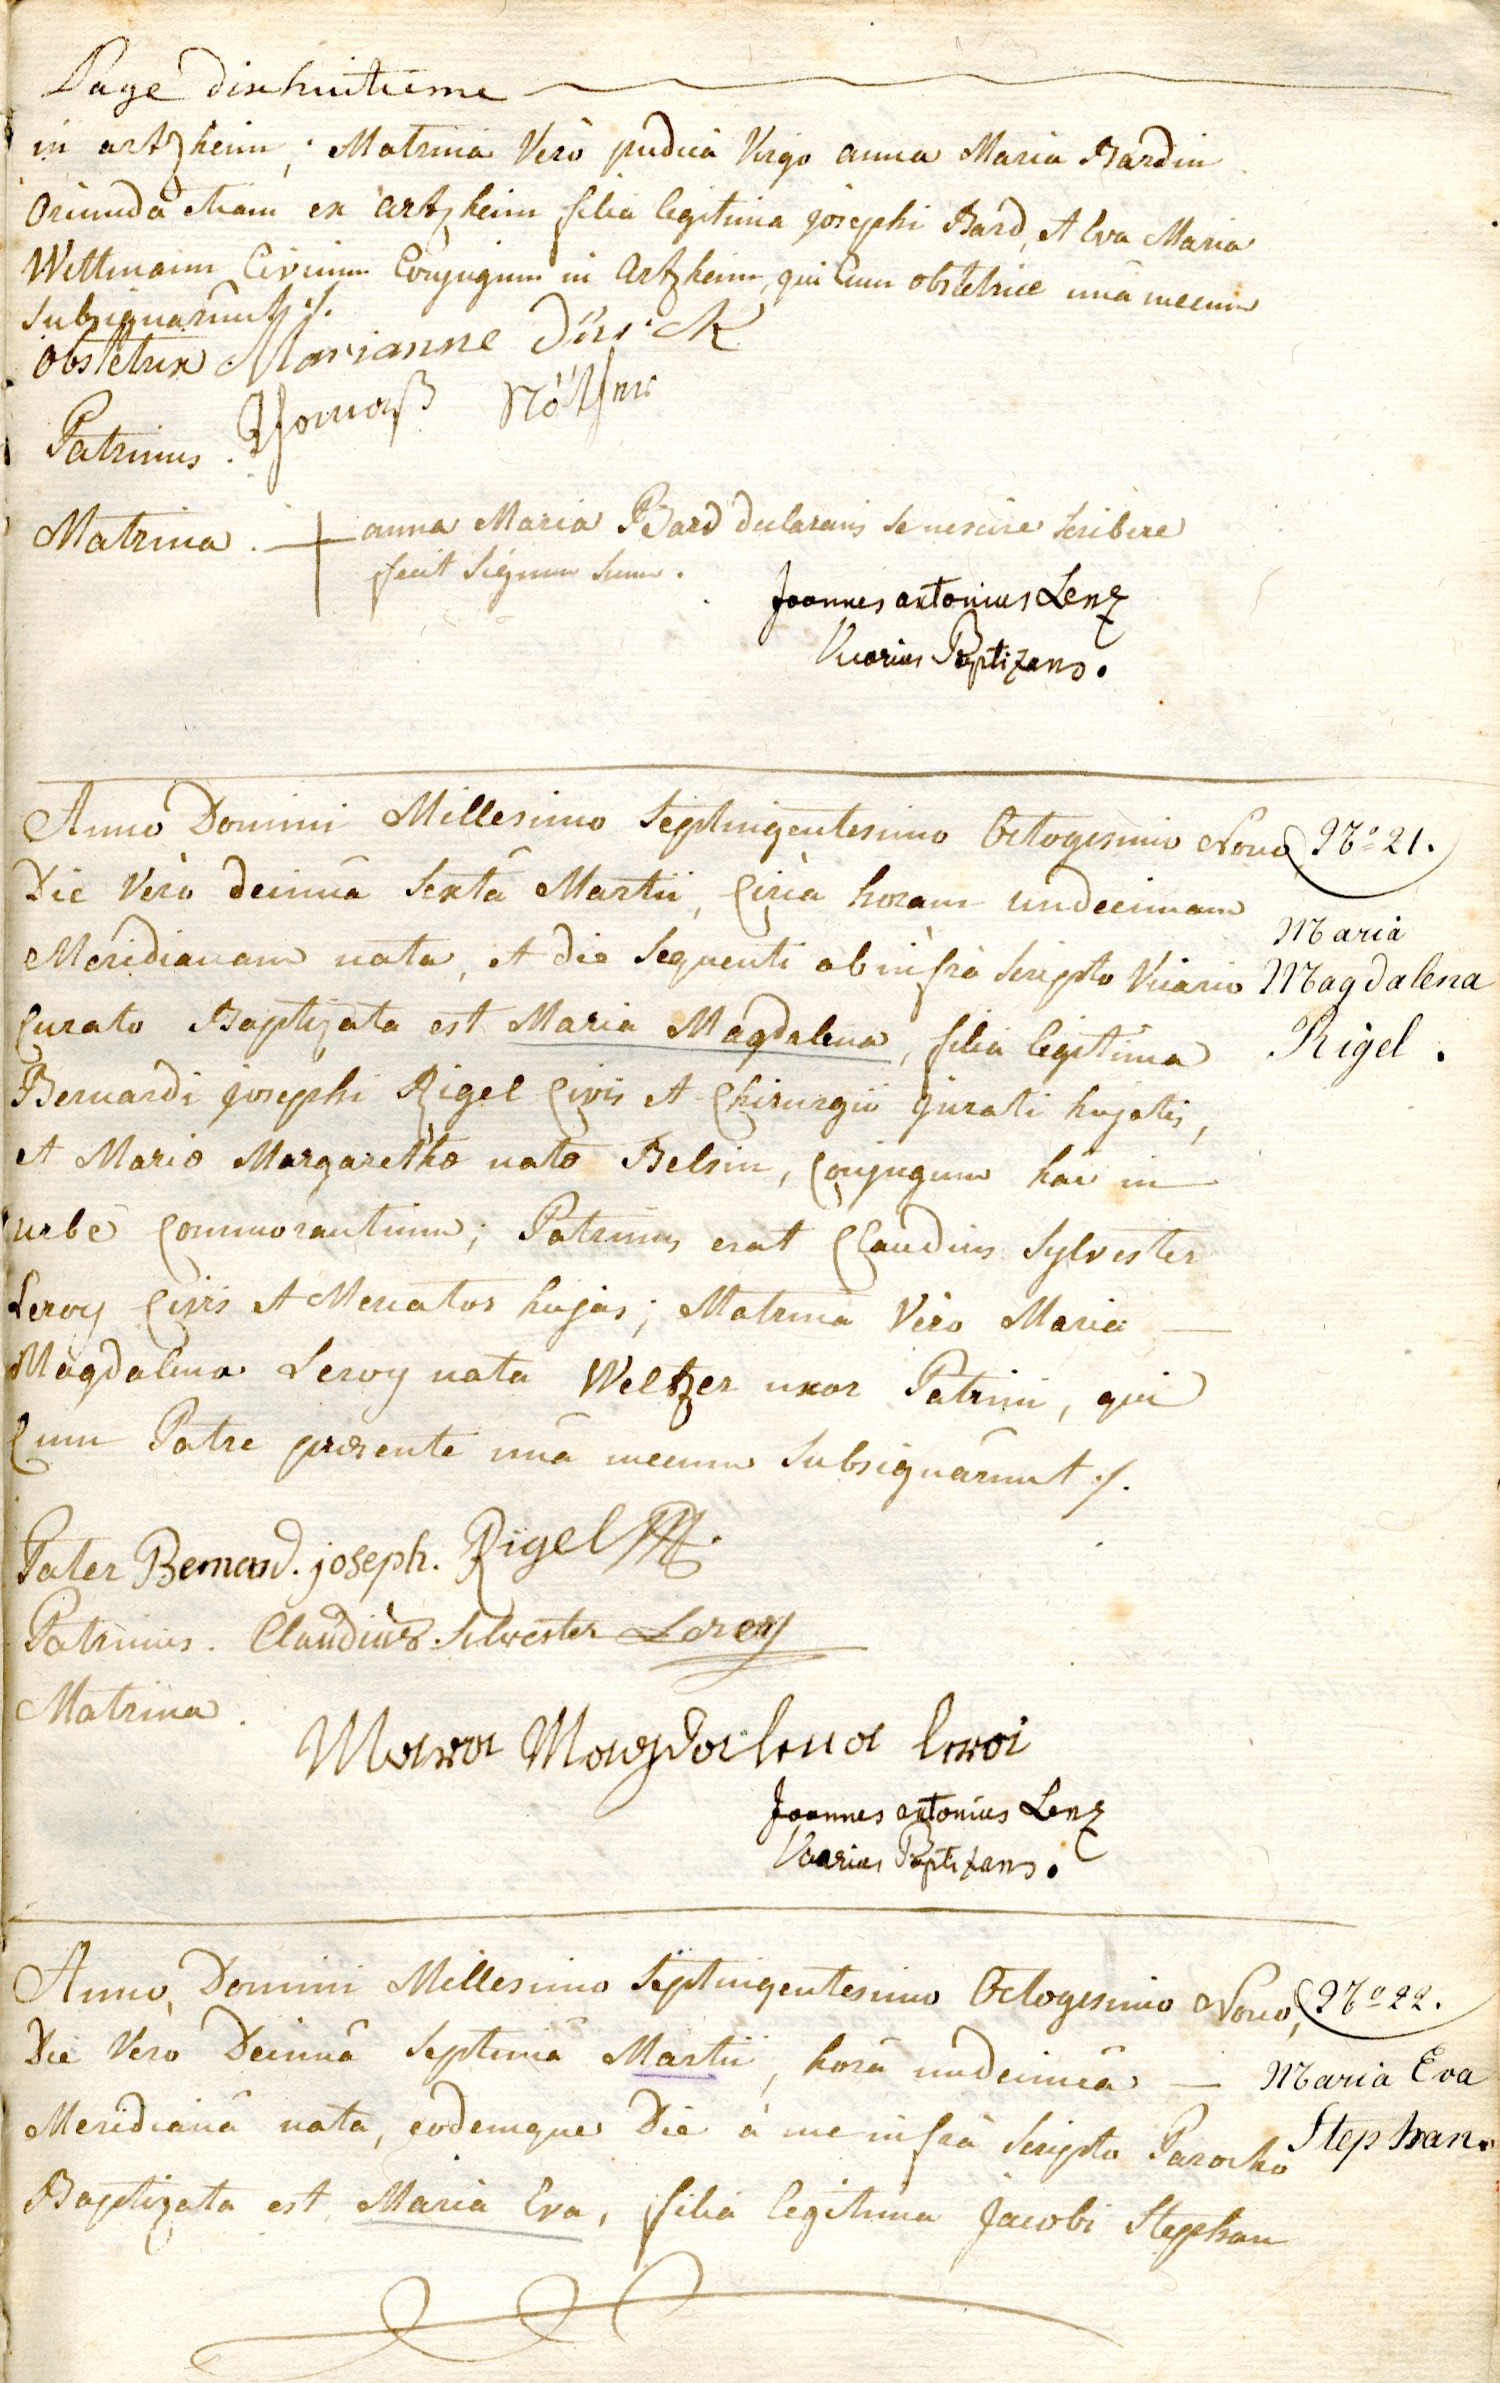 Page dixhuitieme
in artzheim; Matrina Verò pudica Virgo anna Maria Bardin
Oriunda etiam ex artzheim filia legitima josephi Bard, et Eva Maria
Wittmann Civium Conjugum in Artzheim, qui Cum obstetrice unâ mecum
Subsignârunt ./.
Obstetrix Marianne Dürck
Patrinus . Thomaß Nöltner
Matrina . + anna Maria Bard declarans se nescire scribere
fecit Signum suum .
Joannes antonius Lenz
Vicarius Baptizans .
Anno Domini Millesimo Septingentesimo Octogesimo Nono
No 21.
Die Verò decimâ Sextâ Martii, Circà horam undecimam
Meridianam nata, et die Sequenti ab infrà Scripto Vicario
Maria
Magdalena
Rigel .
Curato Baptizata est Maria Magdalena, filia legitima
Bernardi josephi Rigel Civis et Chirurgii jurati hujatis,
et Mariæ Margarethæ natæ Belsin, Conjugum hac in
urbe Commorantium; Patrinus erat Claudius Sylvester
Leroy Civis et Mercator hujas; Matrina Verò Maria
Magdalena Leroy nata Weltzer uxor Patrini, qui
Cum Patre præsente unâ mecum Subsignârunt ./.
Pater Bernard. joseph. Rigel
Patrinus . Claudius Silvester Leroy
Matrina .
Maria Magdalena leroi
Joannes antonius Lenz
Vicarius Baptizans .
Anno Domini Millesimo Septingentesimo Octogesimo Nono,
No 22.
Die Vero Decimâ Septimâ Martii, horâ undecimâ
Maria Eva
Stephan.
Meridianâ nata, eodemque Die à me infrà Scripto Parocho
Baptizata est Maria Eva, filia legitima Jacobi Stephan